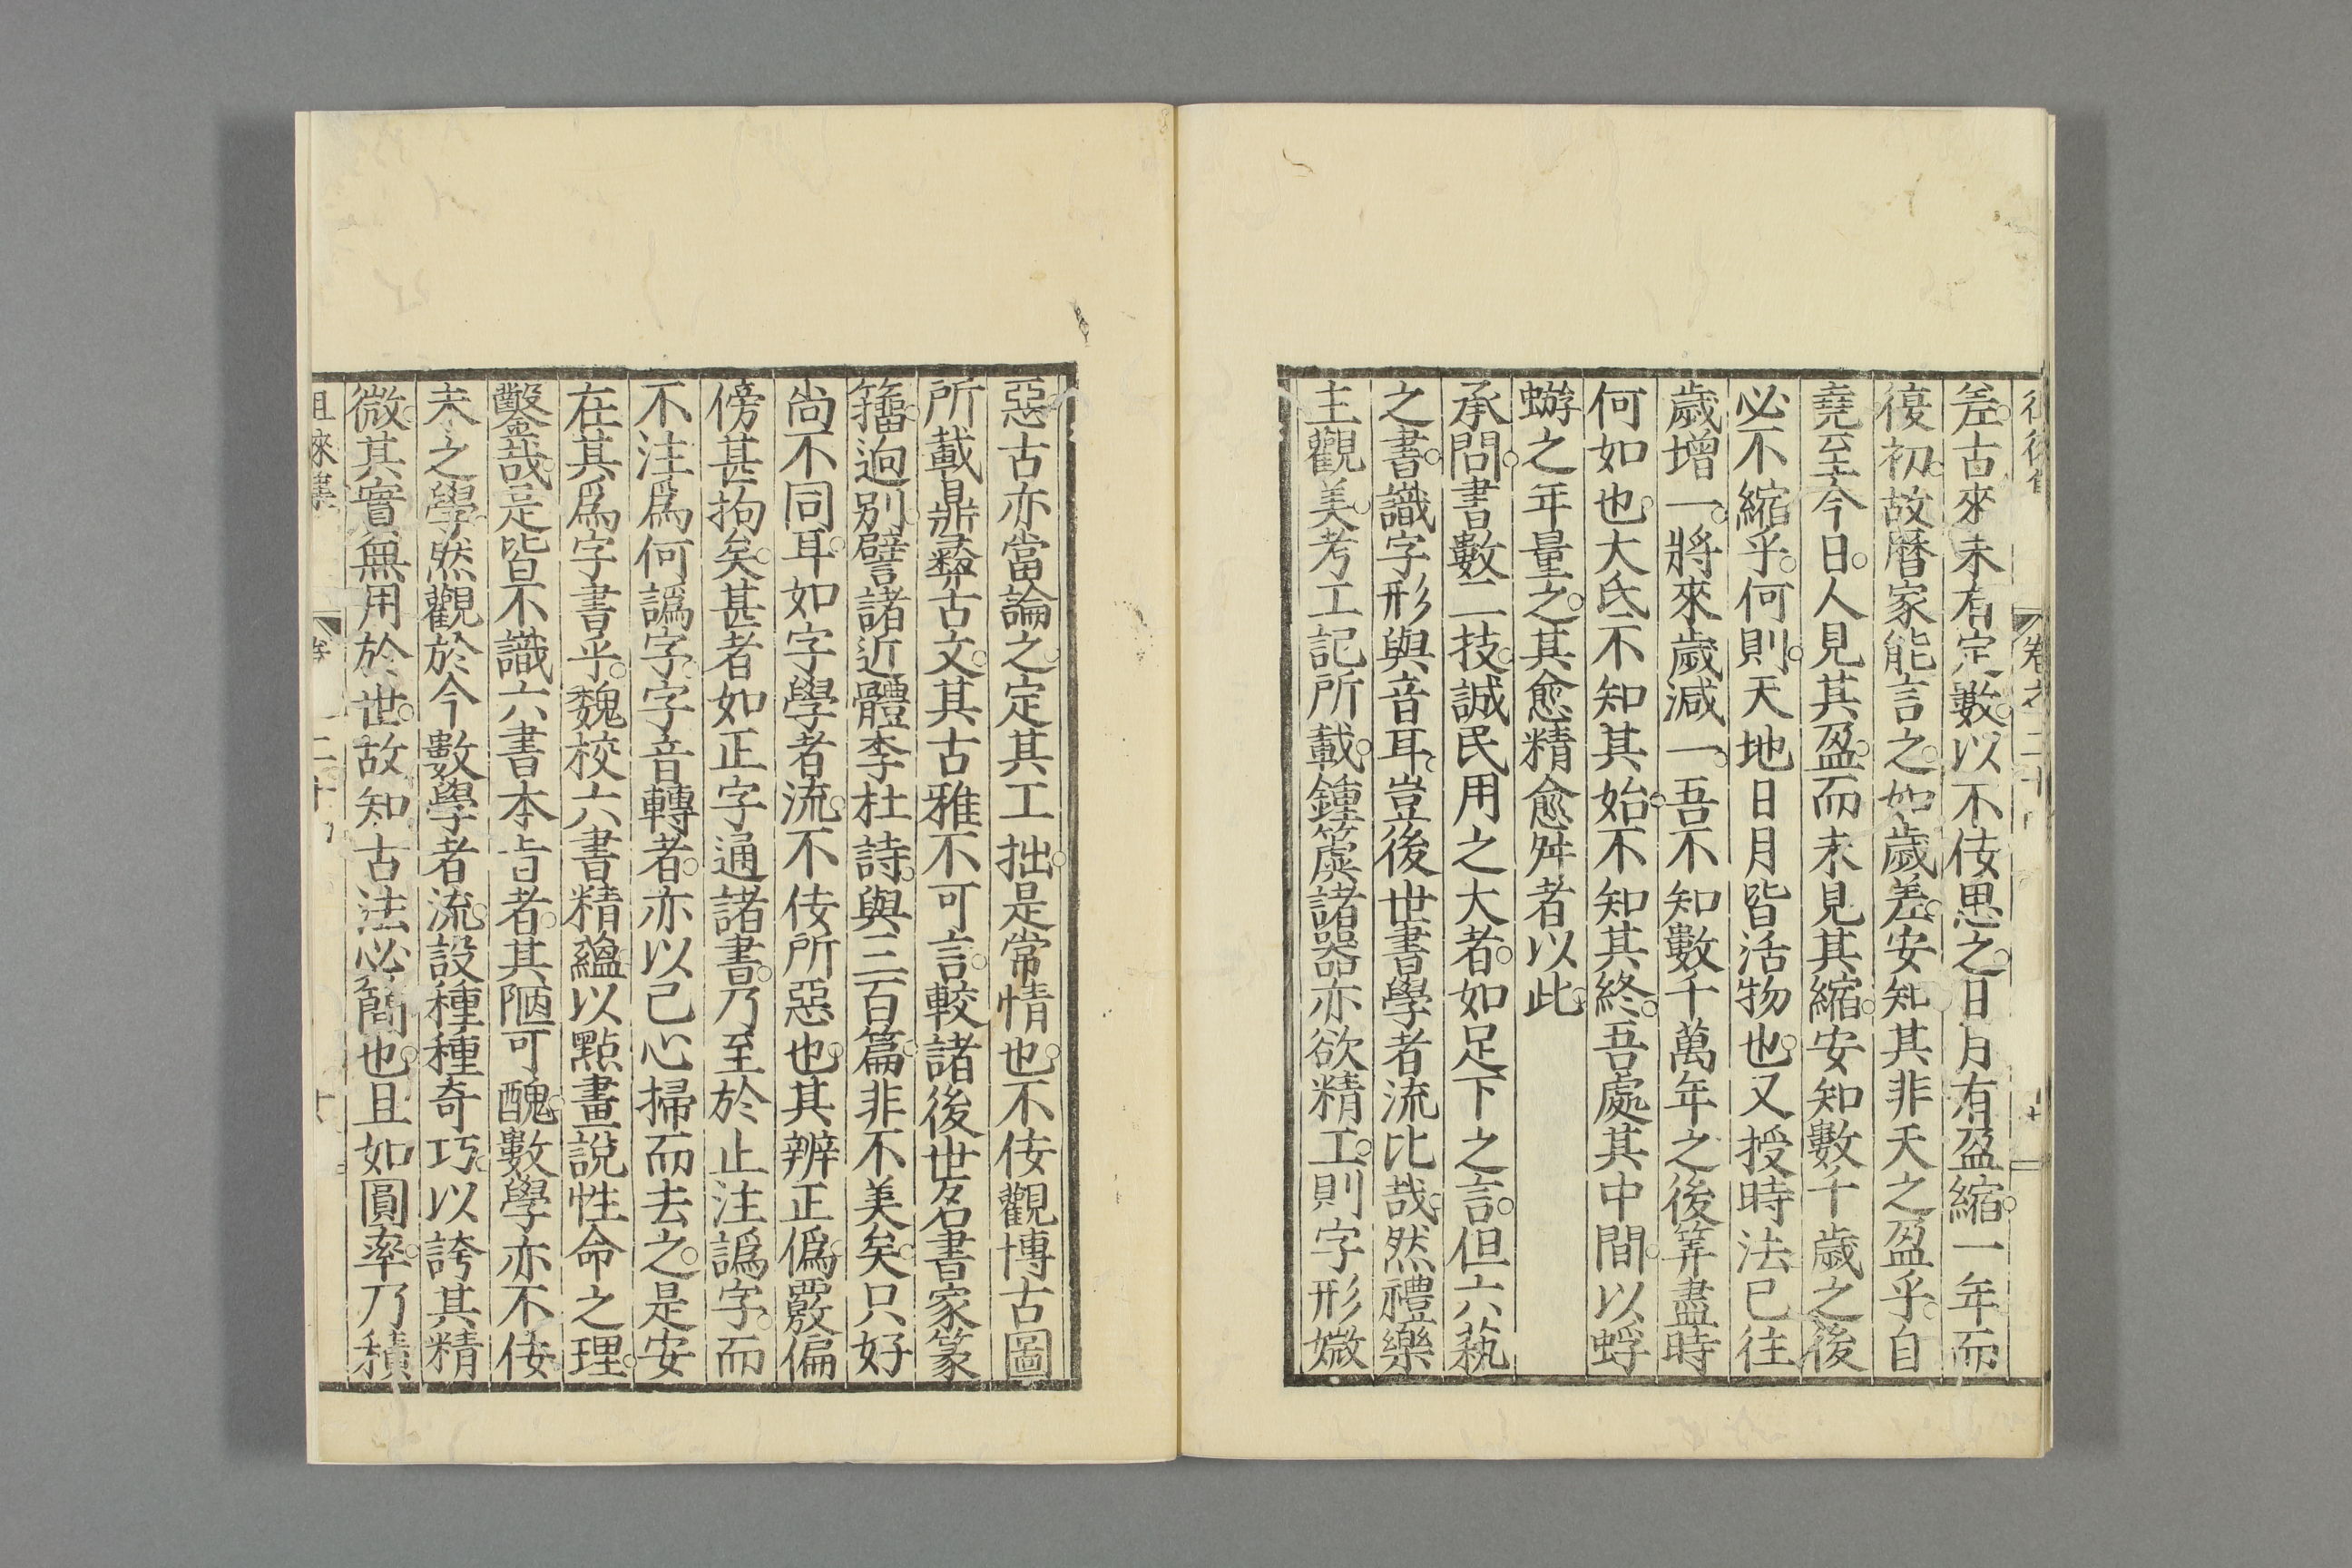 差古來未有定數以不佞思之日月有盈縮一年而
復初故曆家能言之如歲差安知其非天之盈乎自
堯至今日人見其盈而未見其縮安知數千歲之後
必不縮乎何則天地日月皆活物也又授時法已往
歲增一將來歲減一吾不知數千萬年之後筭盡時
何如也大氐不知其始不知其終吾處其中間以蜉
蝣之年量之其愈精愈舛者以此
承問書數二技誠民用之大者如足下之言但六藝
之書識字形與音耳豈後世書學者流比哉然禮樂
主觀美考工記所載鍾簴諸器亦欲精工則字形媺
惡古亦當論之定其工拙是常情也不佞觀博古圖
所載鼎彝古文其古雅不可言較諸後世名書家篆
籀逈別譬諸近體李杜詩與三百篇非不美矣只好
尚不同耳如字學者流不佞所惡也其辨正僞覈偏
傍甚拘矣甚者如正字通諸書乃至於止注譌字而
不注爲何譌字字音轉者亦以己心掃而去之是安
在其爲字書乎魏校六書精蘊以點畫說性命之理
鑿哉是皆不識六書本旨者其陋可醜數學亦不佞
未之學然觀於今數學者流設種種奇巧以誇其精
微其實無用於世故知古法必簡也且如圓率乃積